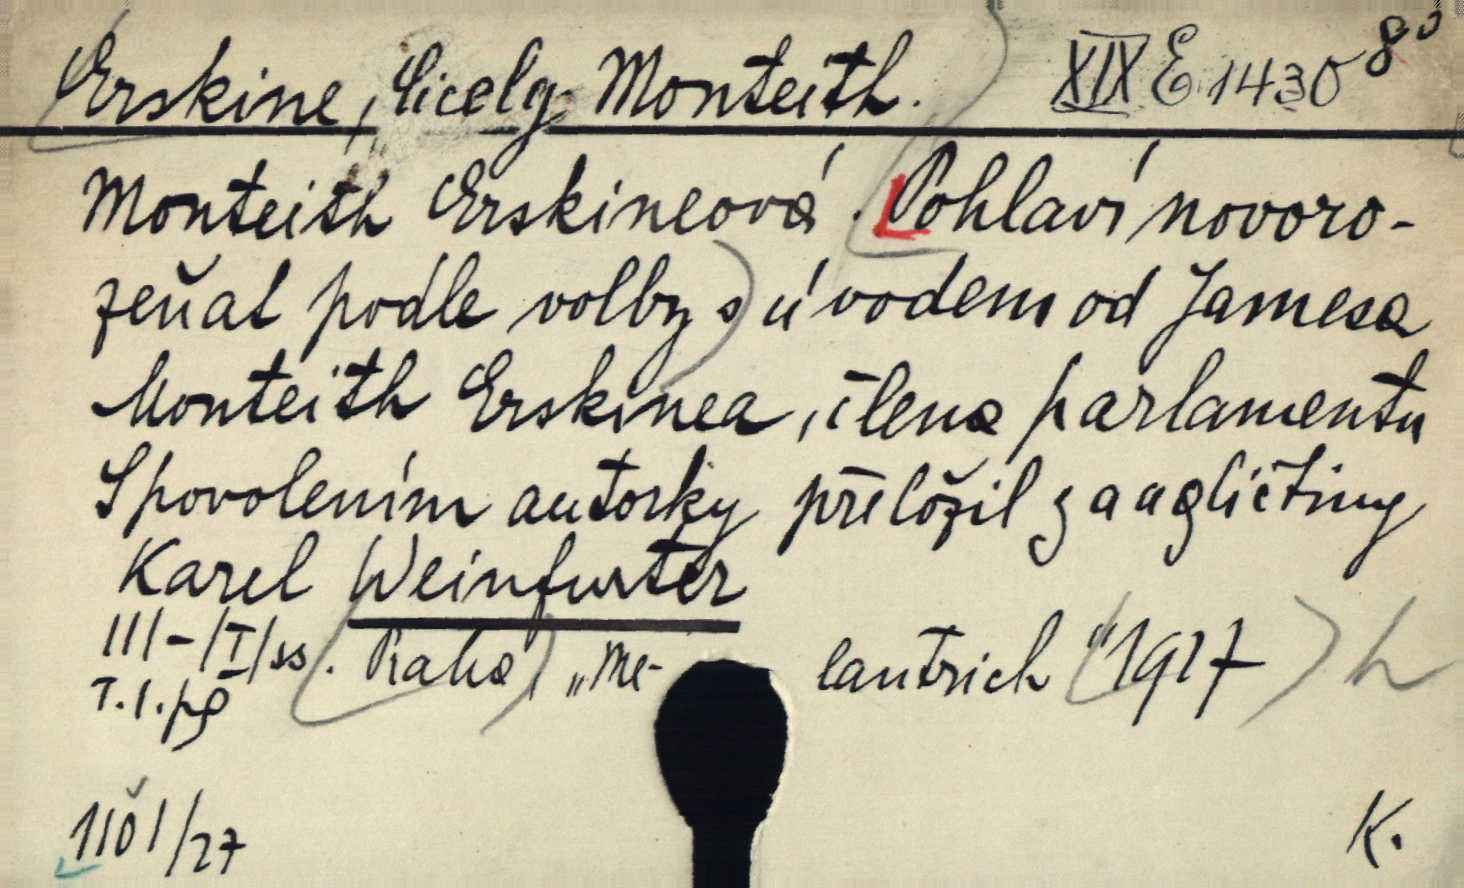 Erskine, Cicely Monteith. XIX E 1430 8°
Monteith Erskineová. Pohlaví novoro-
zeňat podle volby s úvodem od Jamesa
Monteith Erskinea, člena parlamentu
S povolením autorky přeložil z aagličtiny
Karel Weinfurter
III-/I/ss. Praha, „Me- lantrich" 1917
T.I.pg
1101/27 K.